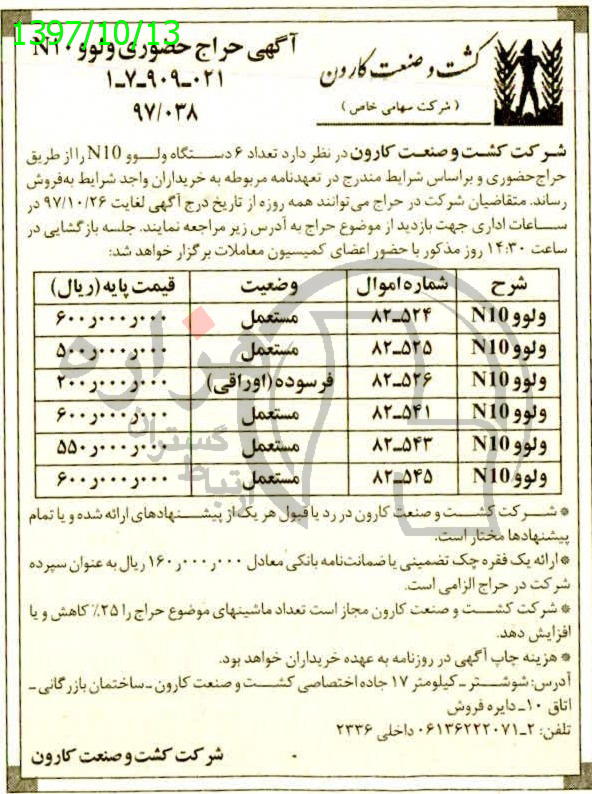 1397/10/13
آگهی حراج حضوری ولوو N۱۰
۱ـ۷ـ۹۰۹ـ۰۲۱
۹۷/۰۳۸
کشت و صنعت کارون
(شرکت سهامی خاص)
شرکت کشت و صنعت کارون در نظر دارد تعداد ۶ دستگاه ولوو N10 را از طریق
حراج حضوری و براساس شرایط مندرج در تعهدنامه مربوطه به خریداران واجد شرایط به‌فروش
رساند. متقاضیان شرکت در حراج می‌توانند همه روزه از تاریخ درج آگهی لغایت ۹۷/۱۰/۲۶ در
ساعات اداری جهت بازدید از موضوع حراج به آدرس زیر مراجعه نمایند. جلسه بازگشایی در
ساعت ۱۴:۳۰ روز مذکور با حضور اعضای کمیسیون معاملات برگزار خواهد شد:
شرح شماره اموال وضعیت قیمت پایه (ریال)
ولوو N10 ۸۲ـ۵۲۴ مستعمل ۶۰۰ر۰۰۰ر۰۰۰
ولوو N10 ۸۲ـ۵۲۵ مستعمل ۵۰۰ر۰۰۰ر۰۰۰
ولوو N10 ۸۲ـ۵۲۶ فرسوده (اوراقی) ۲۰۰ر۰۰۰ر۰۰۰
ولوو N10 ۸۲ـ۵۴۱ مستعمل ۶۰۰ر۰۰۰ر۰۰۰
ولوو N10 ۸۲ـ۵۴۳ مستعمل ۵۵۰ر۰۰۰ر۰۰۰
ولوو N10 ۸۲ـ۵۴۵ مستعمل ۶۰۰ر۰۰۰ر۰۰۰
هزاره
گستران
* شرکت کشت و صنعت کارون در رد یا قبول هر یک از پیشنهادهای ارائه شده و یا تمام
پیشنهادها مختار است.
* ارائه یک فقره چک تضمینی یا ضمانت‌نامه بانکی معادل ۱۶۰ر۰۰۰ر۰۰۰ ریال به عنوان سپرده
شرکت در حراج الزامی است.
* شرکت کشت و صنعت کارون مجاز است تعداد ماشینهای موضوع حراج را ۲۵٪ کاهش و یا
افزایش دهد.
* هزینه چاپ آگهی در روزنامه به عهده خریداران خواهد بود.
آدرس: شوشتر ـ کیلومتر ۱۷ جاده اختصاصی کشت و صنعت کارون ـ ساختمان بازرگانی ـ
اتاق ۱۰ـ دایره فروش
تلفن: ۲ـ۰۶۱۳۶۲۲۲۰۷۱ داخلی ۲۳۳۶
شرکت کشت و صنعت کارون